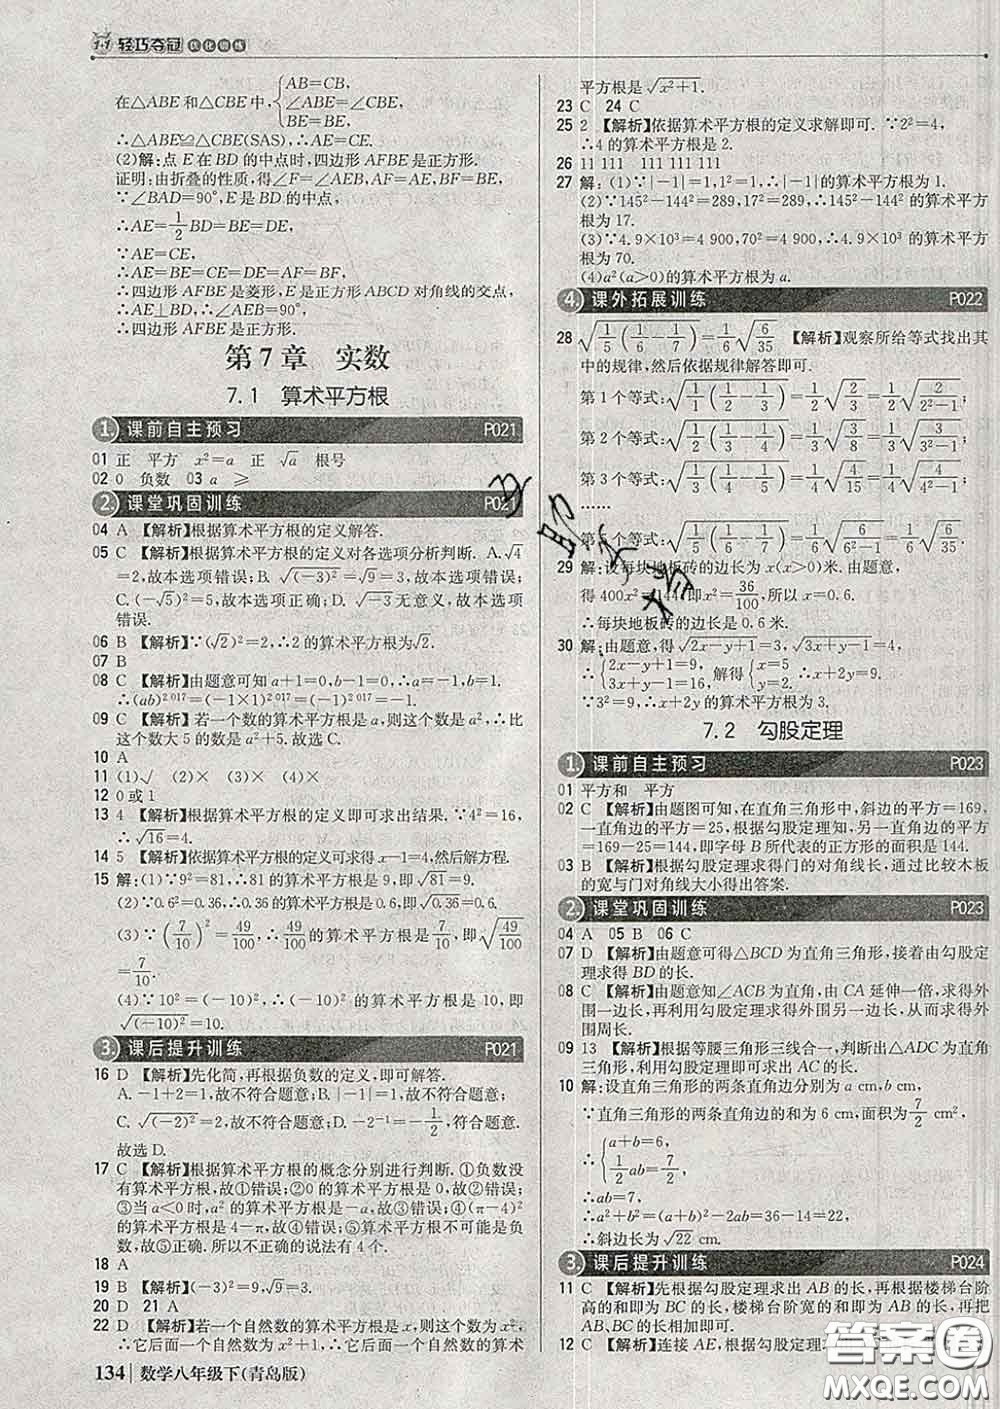 1+1 轻巧夺冠 优化训练
在△ABE和△CBE中, { AB=CB, ∠ABE=∠CBE, BE=BE,
∴△ABE≌△CBE(SAS).∴AE=CE.
(2)解:点E在BD的中点时,四边形AFBE是正方形.
证明:由折叠的性质,得∠F=∠AEB,AF=AE,BF=BE.
∵∠BAD=90°,E是BD的中点,
∴AE=1/2BD=BE=DE.
∵AE=CE,
∴AE=BE=CE=DE=AF=BF,
∴四边形AFBE是菱形,E是正方形ABCD对角线的交点,
∴AE⊥BD,∴∠AEB=90°,
∴四边形AFBE是正方形.
第7章 实数
7.1 算术平方根
1. 课前自主预习 P021
01 正 平方 x²=a 正 √a 根号
02 0 负数 03 a ≥
2. 课堂巩固训练 P021
04 A 【解析】根据算术平方根的定义解答.
05 C 【解析】根据算术平方根的定义对各选项分析判断. A.√4
=2,故本选项错误;B.√(-3)²=√9=3,故本选项错误;
C.(-√5)²=5,故本选项正确;D.√-3无意义,故本选项
错误.
06 B 【解析】∵(√2)²=2,∴2的算术平方根为√2.
07 B
08 C 【解析】由题意可知a+1=0,b-1=0,∴a=-1,b=1.
∴(ab)²⁰¹⁷=(-1×1)²⁰¹⁷=(-1)²⁰¹⁷=-1.
09 C 【解析】若一个数的算术平方根是a,则这个数是a²,∴比
这个数大5的数是a²+5.故选C.
10 A
11 (1)√ (2)× (3)× (4)×
12 0或1
13 4 【解析】根据算术平方根的定义即可求出结果.∵4²=16,
∴√16=4.
14 5 【解析】依据算术平方根的定义可求得x-1=4,然后解方程.
15 解:(1)∵9²=81,∴81的算术平方根是9,即√81=9.
(2)∵0.6²=0.36,∴0.36的算术平方根是0.6,即√0.36=0.6.
(3)∵(7/10)²=49/100,∴49/100的算术平方根是7/10,即√(49/100)
=7/10.
(4)∵10²=(-10)²,∴(-10)²的算术平方根是10,即
√(-10)²=10.
3. 课后提升训练 P021
16 D 【解析】先化简,再根据负数的定义,即可解答.
A.-1+2=1,故不符合题意;B.|-1|=1,故不符合题意;
C.√(-2)²=2,故不符合题意;D.-2⁻¹=-1/2,符合题意.
故选D.
17 C 【解析】根据算术平方根的概念分别进行判断.①负数没
有算术平方根,故①错误;②0的算术平方根是0,故②错误;
③当a<0时,a²的算术平方根是-a,故③错误;④(π-4)²
的算术平方根是4-π,故④错误;⑤算术平方根不可能是负
数,故⑤正确.所以不正确的说法有4个.
18 A
19 B 【解析】(-3)²=9,√9=3.
20 D 21 A
22 D 【解析】若一个自然数的算术平方根是x,则这个数是x²,
∴它后面一个自然数为x²+1,∴它后面一个自然数的算术
134 数学八年级下(青岛版)
平方根是√x²+1.
23 C 24 C
25 2 【解析】依据算术平方根的定义求解即可.∵2²=4,
∴4的算术平方根是2.
26 11 111 111 111 111
27 解:(1)∵|-1|=1,1²=1,∴|-1|的算术平方根为1.
(2)∵145²-144²=289,17²=289,∴145²-144²的算术平方
根为17.
(3)∵4.9×10³=4 900,70²=4 900,∴4.9×10³的算术平方
根为70.
(4)a²(a>0)的算术平方根为a.
4. 课外拓展训练 P022
28 √(1/5(1/6-1/7))=1/6√(6/35) 【解析】观察所给等式找出其
中的规律,然后依据规律解答即可.
第1个等式:√(1/1(1/2-1/3))=1/2√(2/3)=1/2√(2/(2²-1));
第2个等式:√(1/2(1/3-1/4))=1/3√(3/8)=1/3√(3/(3²-1));
第3个等式:√(1/3(1/4-1/5))=1/4√(4/15)=1/4√(4/(4²-1));
……
第5个等式:√(1/5(1/6-1/7))=1/6√(6/(6²-1))=1/6√(6/35).
29 解:设每块地板砖的边长为x(x>0)米.由题意,
得400x²=144,即x²=36/100,所以x=0.6.
∴每块地板砖的边长是0.6米.
30 解:由题意,得√(2x-y+1)=3,√(3x+y+1)=4,
∴{ 2x-y+1=9, 3x+y+1=16, 解得{ x=5 y=2 ∴x+2y=9.
∵3²=9,∴x+2y的算术平方根为3.
7.2 勾股定理
1. 课前自主预习 P023
01 平方和 平方
02 C 【解析】由题图可知,在直角三角形中,斜边的平方=169,
一直角边的平方=25,根据勾股定理知,另一直角边的平方
=169-25=144,即字母B所代表的正方形的面积是144.
03 B 【解析】根据勾股定理求得门的对角线长,通过比较木板
的宽与门对角线大小得出答案.
2. 课堂巩固训练 P023
04 A 05 B 06 C
07 D 【解析】由题意可得△BCD为直角三角形,接着由勾股定
理求得BD的长.
08 C 【解析】由题意知∠ACB为直角,由CA延伸一倍,求得外
围一边长,再利用勾股定理求得外围另一边长,从而求得外
围周长.
09 13 【解析】根据等腰三角形三线合一,判断出△ADC为直角三
角形,利用勾股定理即可求出AC的长.
10 解:设直角三角形的两条直角边分别为a cm,b cm,
∵直角三角形的两条直角边的和为6 cm,面积为7/2 cm²,
∴{ a+b=6, 1/2ab=7/2,
∴ab=7,
∴a²+b²=(a+b)²-2ab=36-14=22,
∴斜边长为√22 cm.
3. 课后提升训练 P024
11 C 【解析】先根据勾股定理求出AB的长,再根据楼梯台阶
高的和即为BC的长,楼梯台阶宽的和即为AB的长,再把
AB、BC的长相加即可.
12 C 【解析】连接AE,根据
答案圈
MXQE.COM